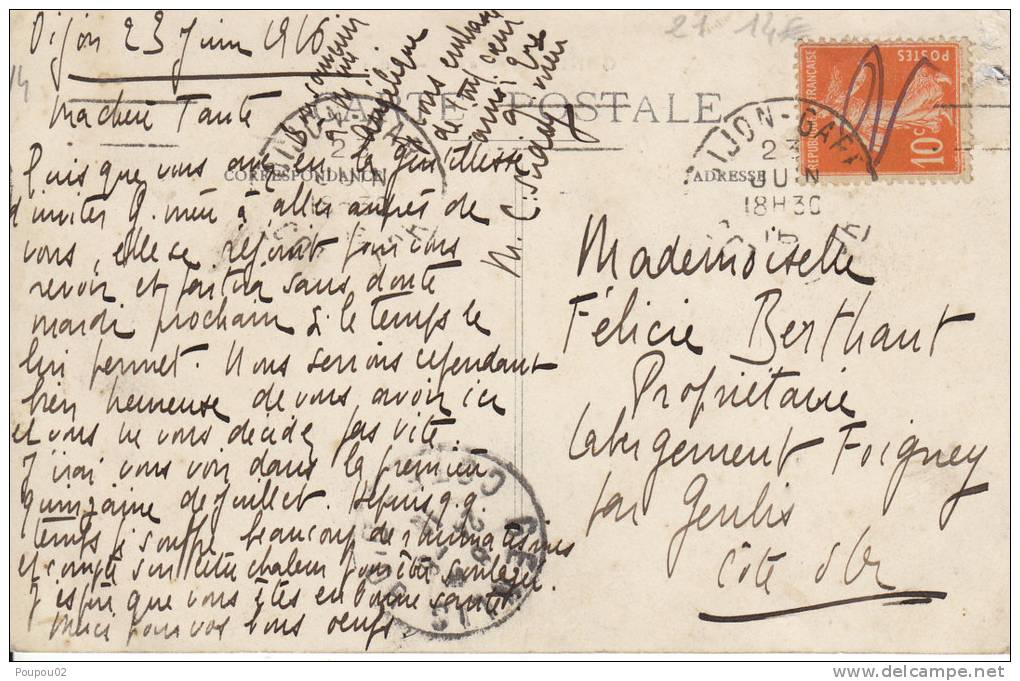 Dijon 23 Juin 1916
27 14€
14
CARTE POSTALE
CORRESPONDANCE
ADRESSE
Ma chère Tante
Puisque vous avez eu la gentillesse
d'inviter g. mère à aller auprès de
vous, elle se réjouit pour vous
revoir et partira sans doute
mardi prochain si le temps le
lui permet. Nous serions cependant
bien heureuse de vous avoir ici
et vous ne vous décidez pas vite.
J'irai vous voir dans la première
quinzaine de juillet. Depuis q.q.
temps je souffre beaucoup de rhumatismes
et compte sur cette chaleur pour être soulagée.
J'espère que vous êtes en bonne santé
Merci pour vos bons oeufs.
Bon souvenir
Angélique
Vous embrasse
de tout coeur
ainsi que
g. mère
M.
Mademoiselle
Félicie Berthaut
Propriétaire
Labergement Foigney
par Genlis
Côte d'Or
DIJON-GARE
23
JUIN
18H30
16
POSTES
REPUBLIQUE FRANÇAISE
10c
GENLIS
COTE D'OR
Poupou02
delcampe.net